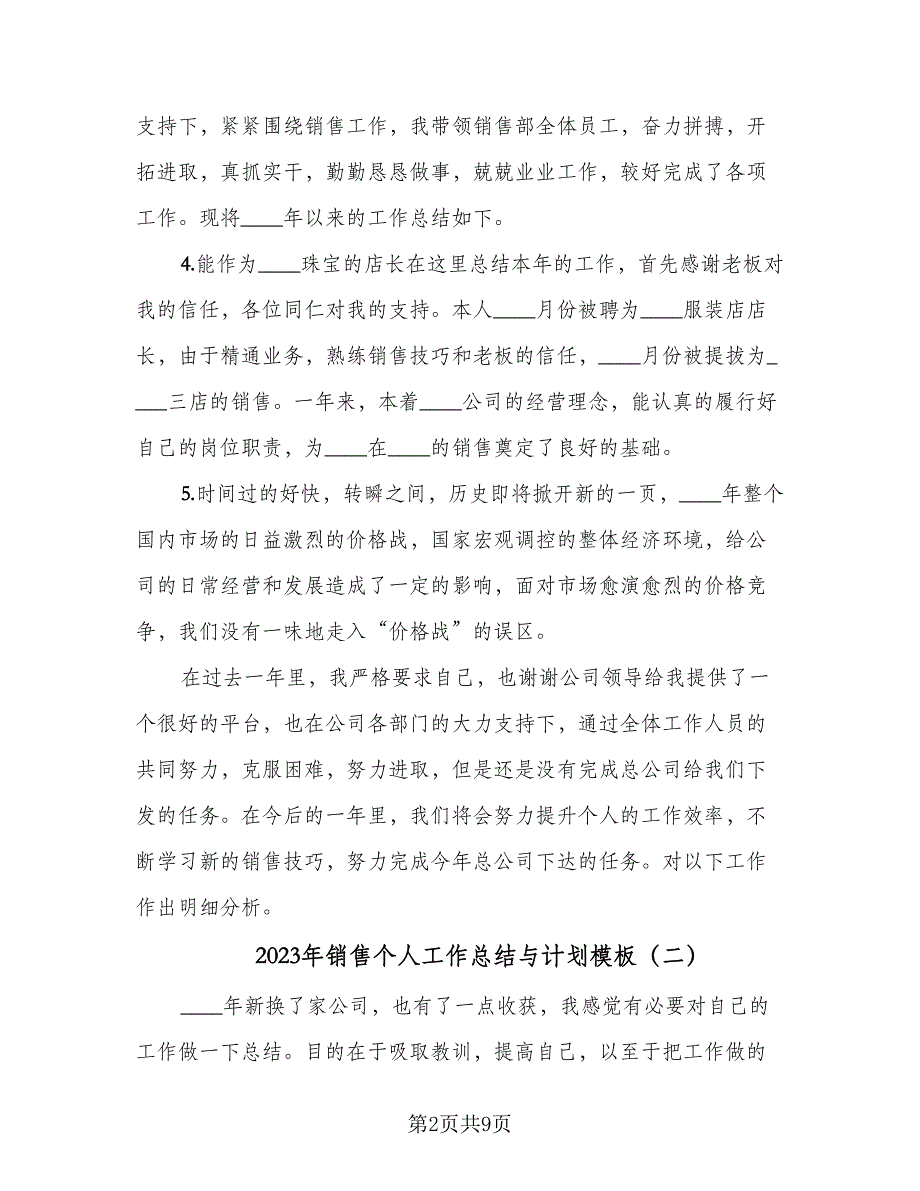 支持下，紧紧围绕销售工作，我带领销售部全体员工，奋力拼搏，开
拓进取，真抓实干，勤勤恳恳做事，兢兢业业工作，较好完成了各项
工作。现将____年以来的工作总结如下。
4.能作为____珠宝的店长在这里总结本年的工作，首先感谢老板对
我的信任，各位同仁对我的支持。本人____月份被聘为____服装店店
长，由于精通业务，熟练销售技巧和老板的信任，____月份被提拔为_
___三店的销售。一年来，本着____公司的经营理念，能认真的履行好
自己的岗位职责，为____在____的销售奠定了良好的基础。
5.时间过的好快，转瞬之间，历史即将掀开新的一页，____年整个
国内市场的日益激烈的价格战，国家宏观调控的整体经济环境，给公
司的日常经营和发展造成了一定的影响，面对市场愈演愈烈的价格竞
争，我们没有一味地走入“价格战”的误区。
在过去一年里，我严格要求自己，也谢谢公司领导给我提供了一
个很好的平台，也在公司各部门的大力支持下，通过全体工作人员的
共同努力，克服困难，努力进取，但是还是没有完成总公司给我们下
发的任务。在今后的一年里，我们将会努力提升个人的工作效率，不
断学习新的销售技巧，努力完成今年总公司下达的任务。对以下工作
作出明细分析。
2023年销售个人工作总结与计划模板（二）
____年新换了家公司，也有了一点收获，我感觉有必要对自己的
工作做一下总结。目的在于吸取教训，提高自己，以至于把工作做的
第2页共9页